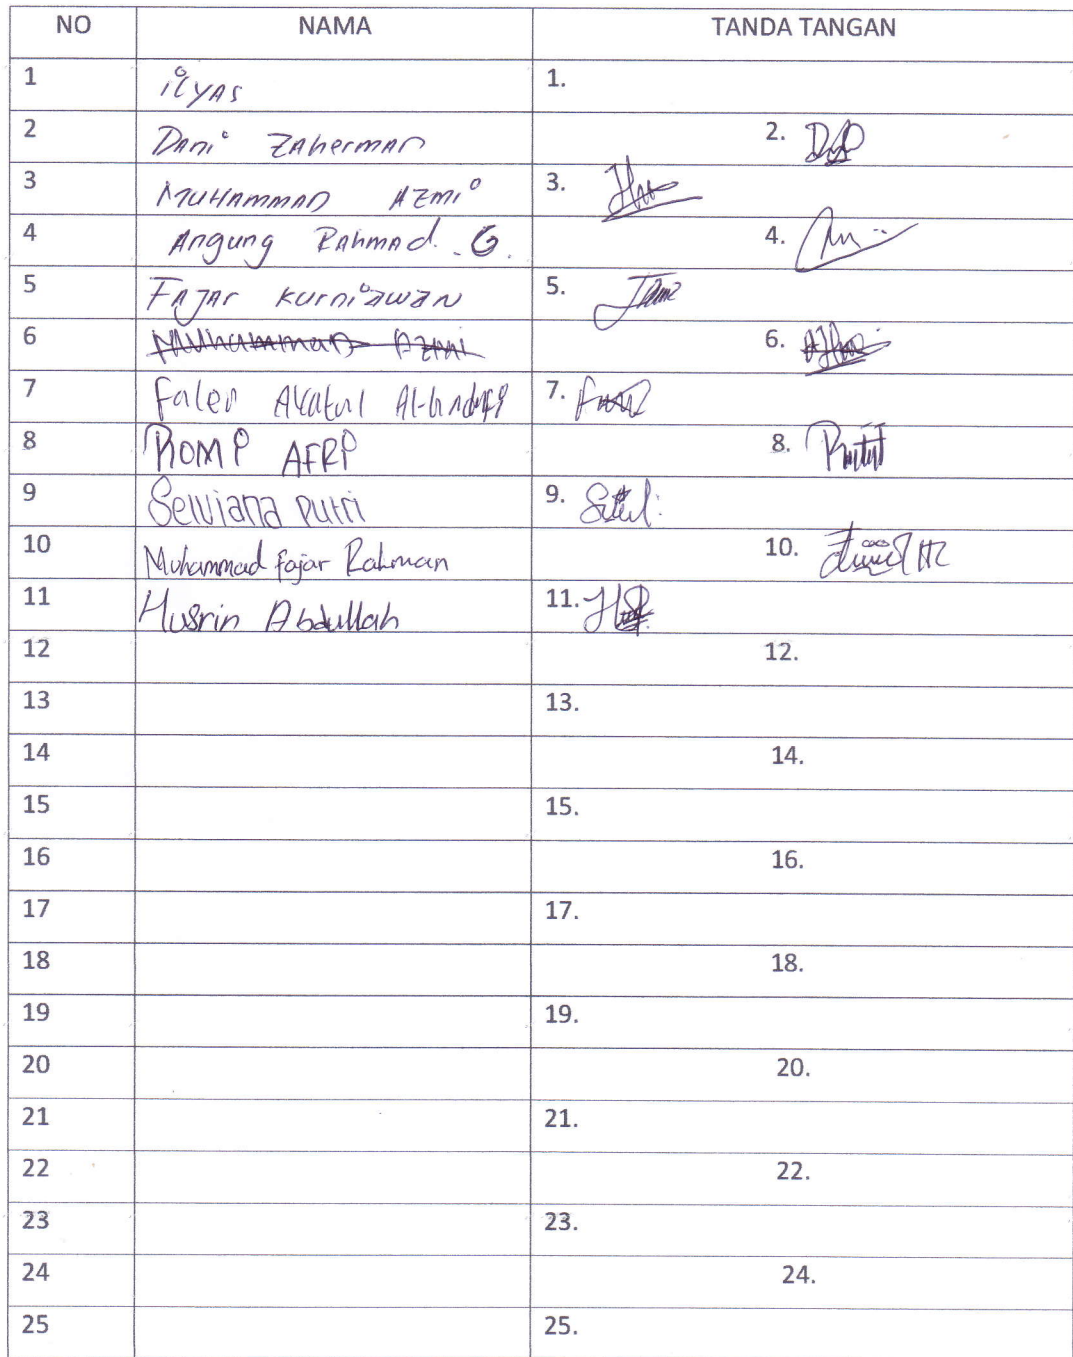 NO NAMA TANDA TANGAN
1 ilyas 1.
2 Dani Zaherman 2.
3 MUHAMMAD AZMI 3.
4 Angung Rahmad. G. 4.
5 FAJAr Kurniawan 5.
6 Muhammad Azmi 6.
7 7.
8 ROMI AFRI 8.
9 Selviana Putri 9.
10 Muhammad Fajar Rahman 10.
11 Husrin Abdullah 11.
12 12.
13 13.
14 14.
15 15.
16 16.
17 17.
18 18.
19 19.
20 20.
21 21.
22 22.
23 23.
24 24.
25 25.